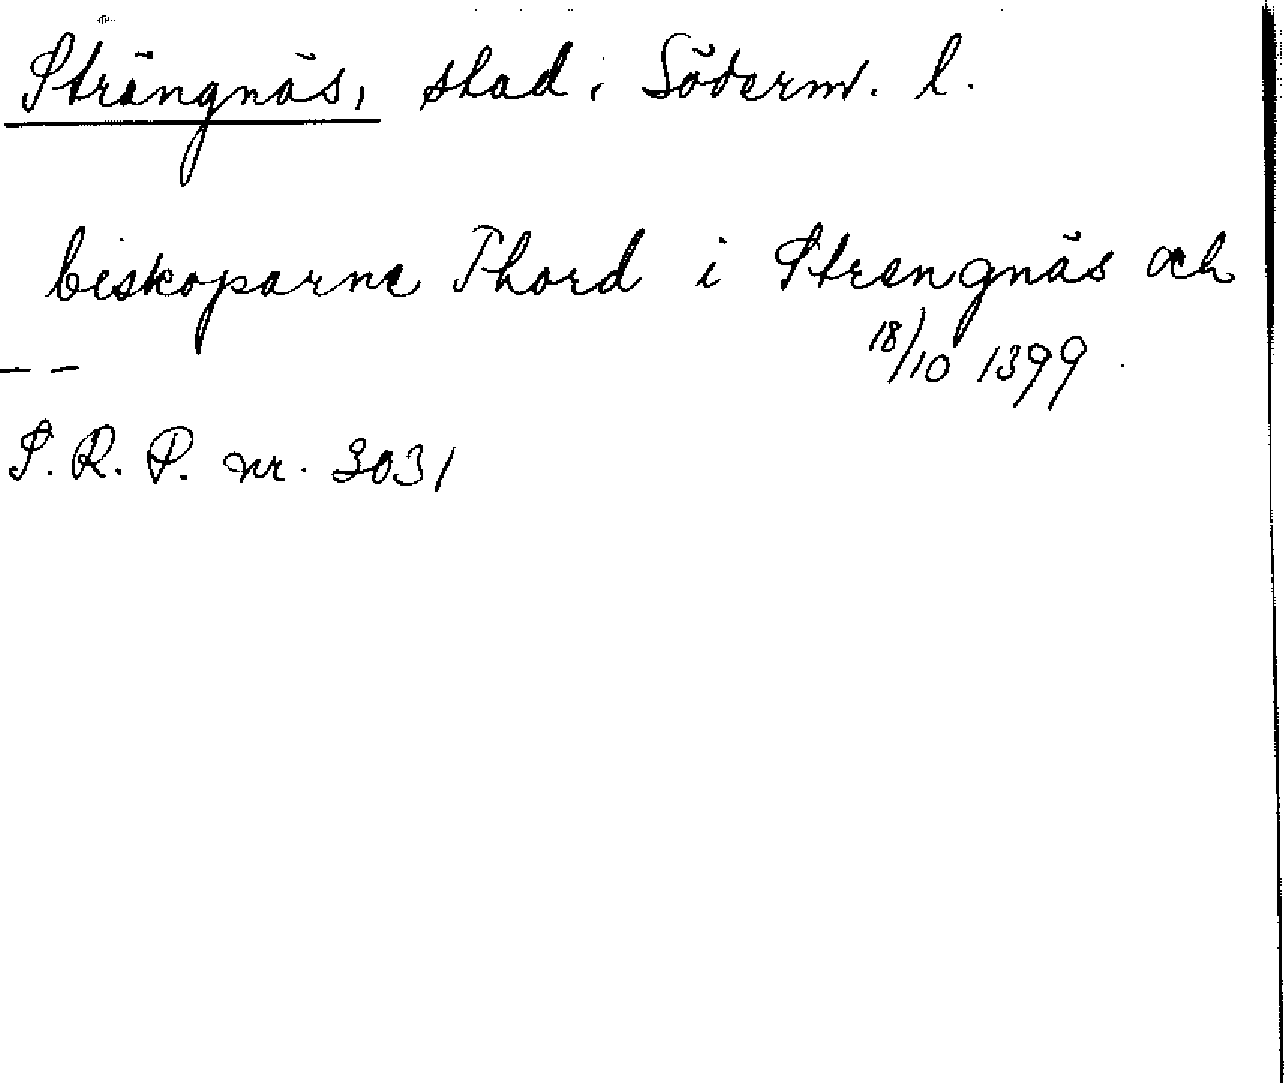 Strängnäs, stad i Söderm. l.
biskoparne Thord i Strengnäs och
— — 18/10 1399.
S. R. P. nr. 3031